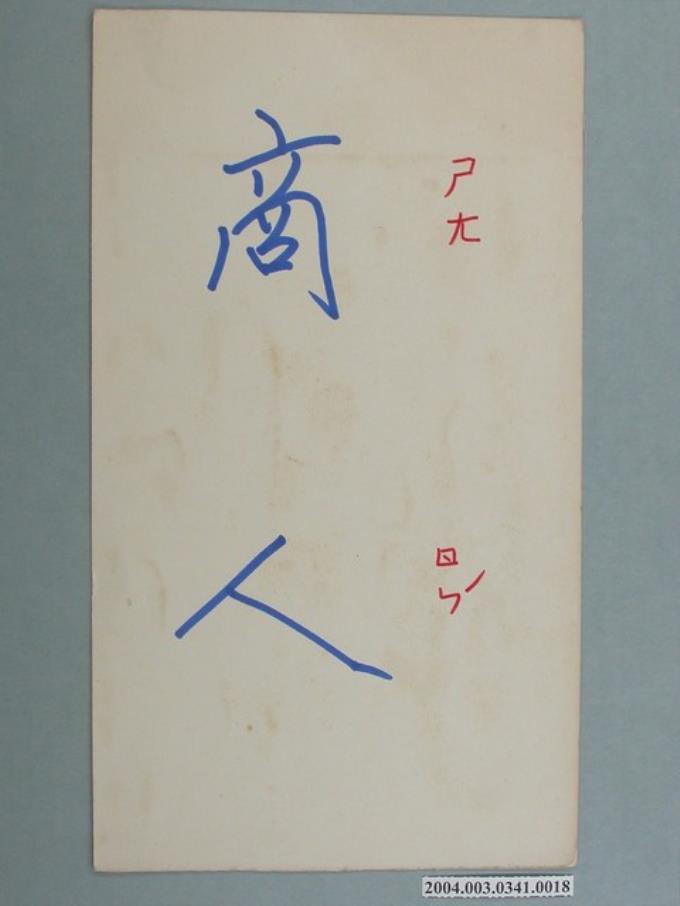 商 ㄕㄤ
人 ㄖㄣˊ
2004.003.0341.0018